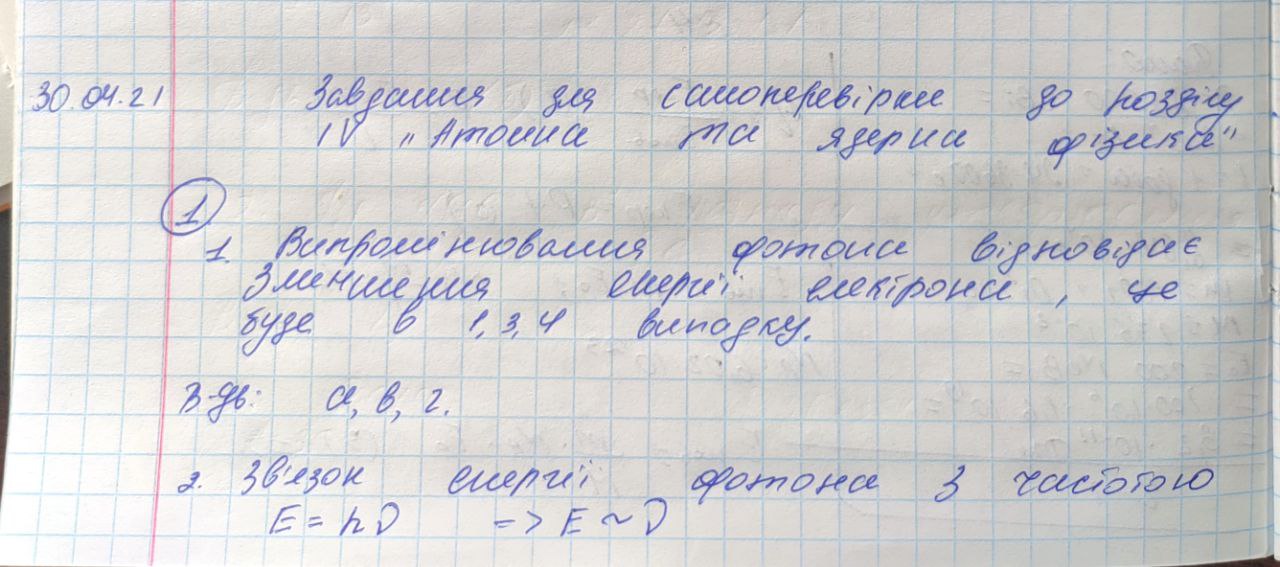 30.04.21 Завдання для самоперевірки до розділу
IV „Атомна та ядерна фізика"
1
1. Випромінювання фотона відповідає
зменшення енергії електрона, це
буде в 1, 3, 4 випадку.
В-дь: а, в, г.
2. Зв'язок енергії фотона з частотою
E = hν => E ~ ν